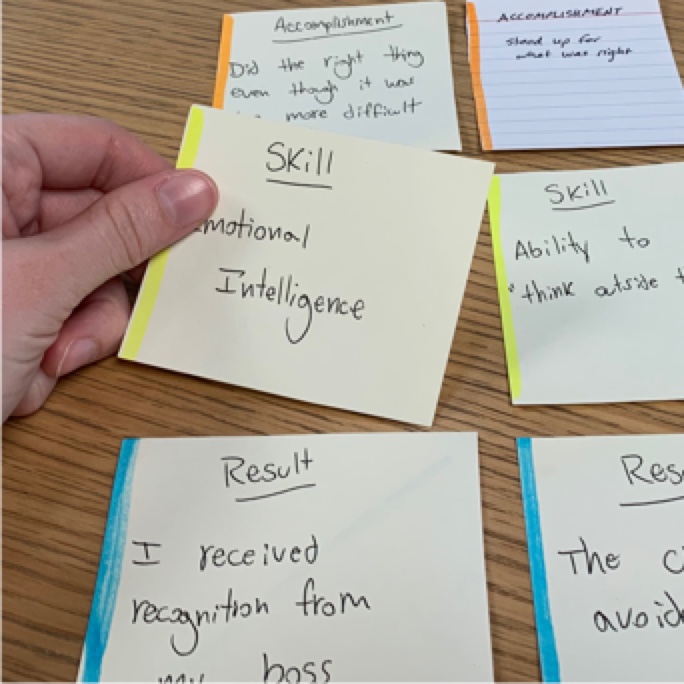 Accomplishment
Did the right thing
even though it was
more difficult
ACCOMPLISHMENT
Stand up for
what was right
Skill
Emotional
Intelligence
Skill
Ability to
think outside
Result
I received
recognition from
my boss
The